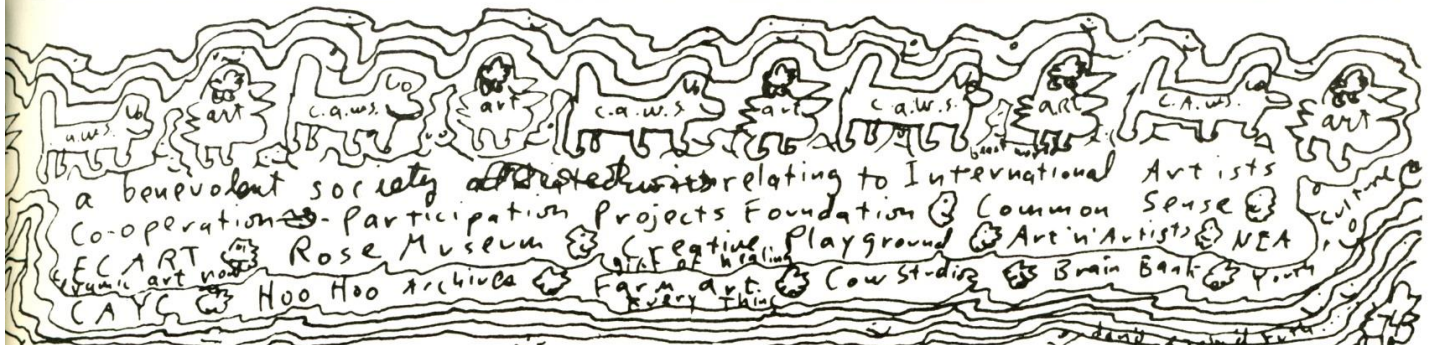 c.a.w.s. art c.a.w.s. art c.a.w.s. art c.a.w.s. art C.A.W.S. art
best world
a benevolent society relating to International Artists
Co-operation - Participation Projects Foundation Common Sense
culture
ECART Rose Museum Creative Playground Art'n'Artists NEA
art of healing
art now
CAYC Hoo Hoo Archives Farm art Cow Studio Brain Bank Youth
Every Thing